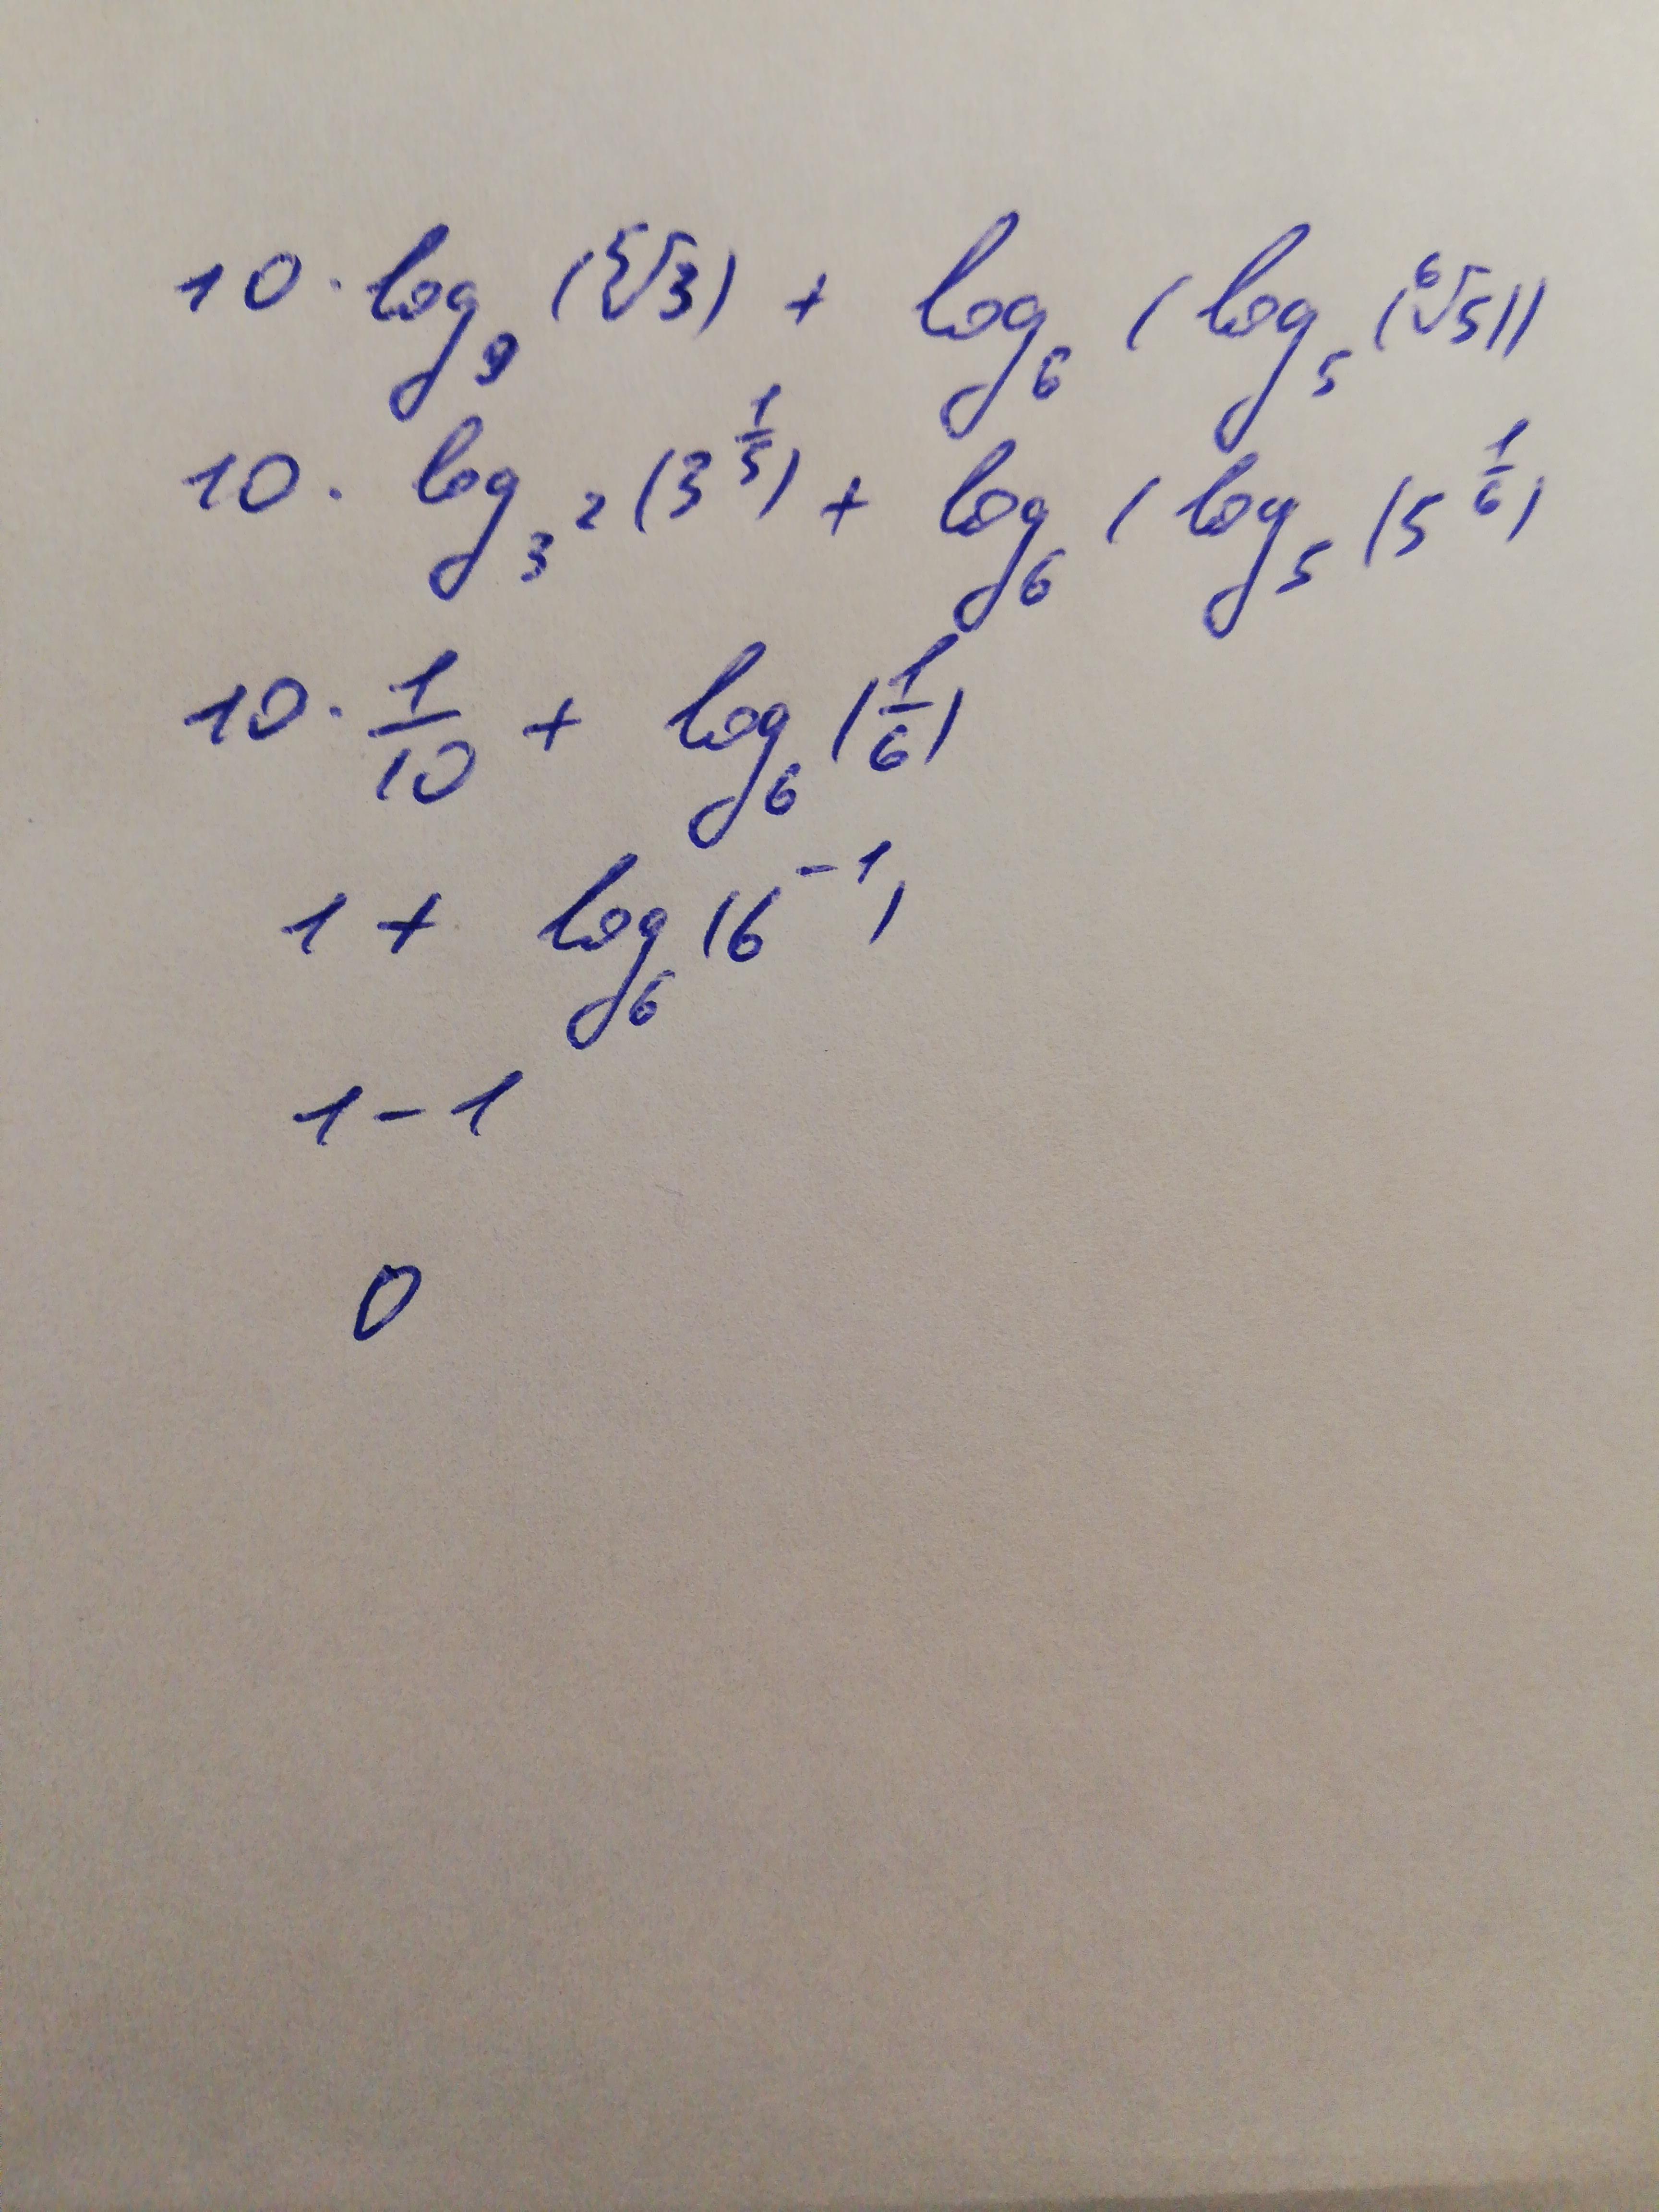 10 · log₉ (⁵√3) + log₆ (log₅ (⁶√5))
10 · log₃² (3^(1/5)) + log₆ (log₅ (5^(1/6))
10 · 1/10 + log₆ (1/6)
1 + log₆ (6⁻¹)
1 - 1
0